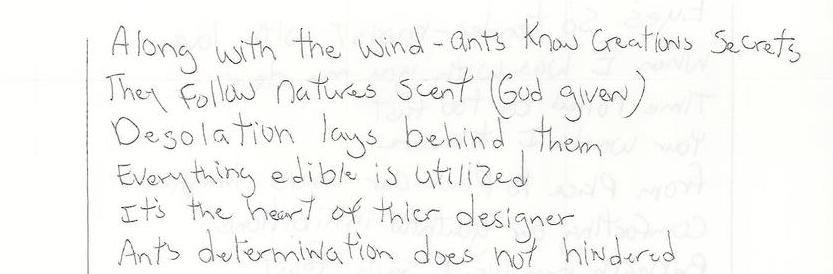 Along with the wind-ants know Creations Secrets
They follow natures scent (God given)
Desolation lays behind them
Everything edible is utilized
It's the heart of thier designer
Ants determination does not hindered